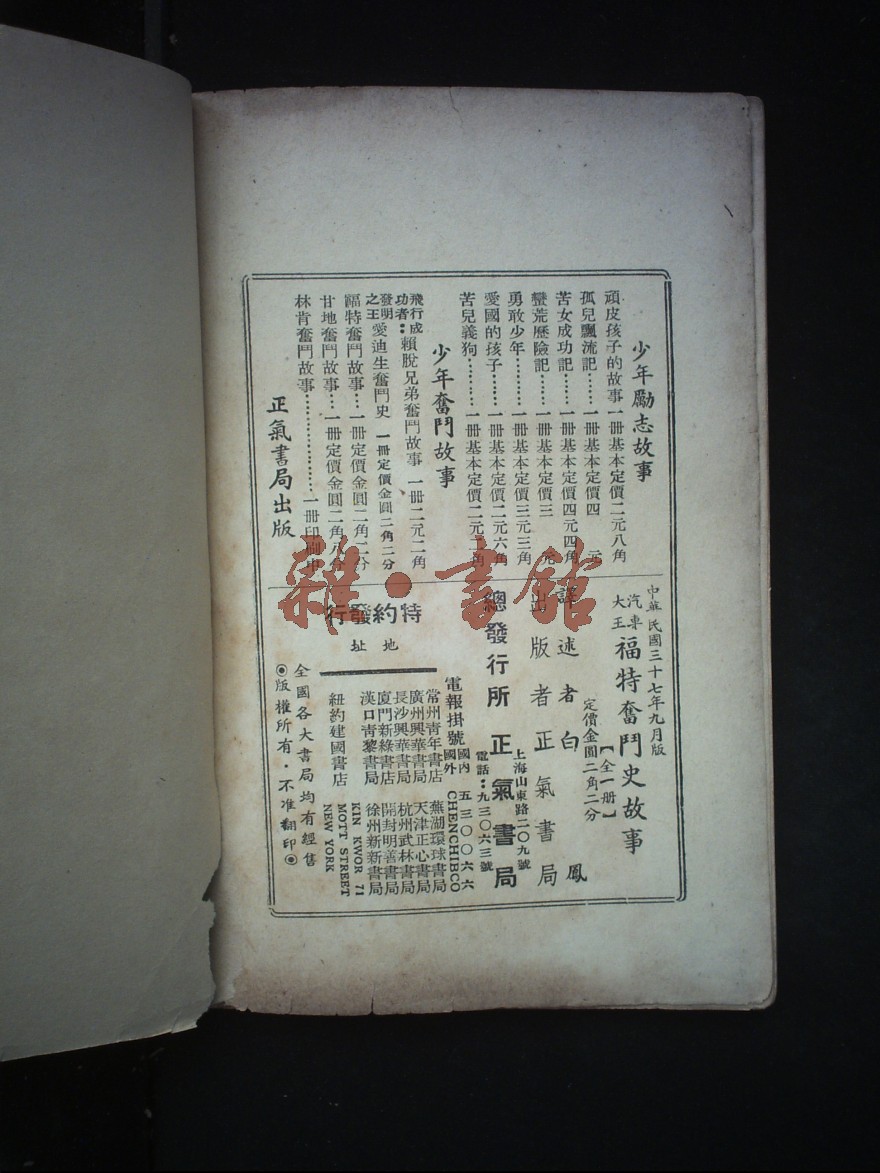 少年勵志故事
頑皮孩子的故事 一冊基本定價二元八角
孤兒飄流記………一冊基本定價四 元
苦女成功記………一冊基本定價四元四角
蠻荒歷險記………一冊基本定價三 元
勇敢少年…………一冊基本定價三元三角
愛國的孩子………一冊基本定價二元六角
苦兒義狗…………一冊基本定價二元二角
少年奮鬥故事
飛行成功者：賴脫兄弟奮鬥故事 一冊二元二角
發明之王愛迪生奮鬥史 一冊定價金圓二角二分
福特奮鬥故事…一冊定價金圓二角二分
甘地奮鬥故事…一冊定價金圓二角八分
林肯奮鬥故事………………一冊印刷中
正氣書局出版
中華民國三十七年九月版
汽車大王福特奮鬥史故事
【全一冊】
定價金圓二角二分
譯述者白鳳
出版者正氣書局
總發行所 正氣書局
上海山東路二〇九號
電話：九三〇六三號
電報掛號
國內 五三〇〇六六
國外 CHENCHIBCO
特約發行
地址
常州青年書店 蕪湖環球書局
廣州興華書局 天津正心書局
長沙興華書局 杭州武林書局
廈門新綠書店 開封明善書局
漢口青黎書局 徐州新新書局
紐約建國書店
KIN KWOR 71
MOTT STREET
NEW YORK
全國各大書局均有經售
◎版權所有・不准翻印◎
雜・書館